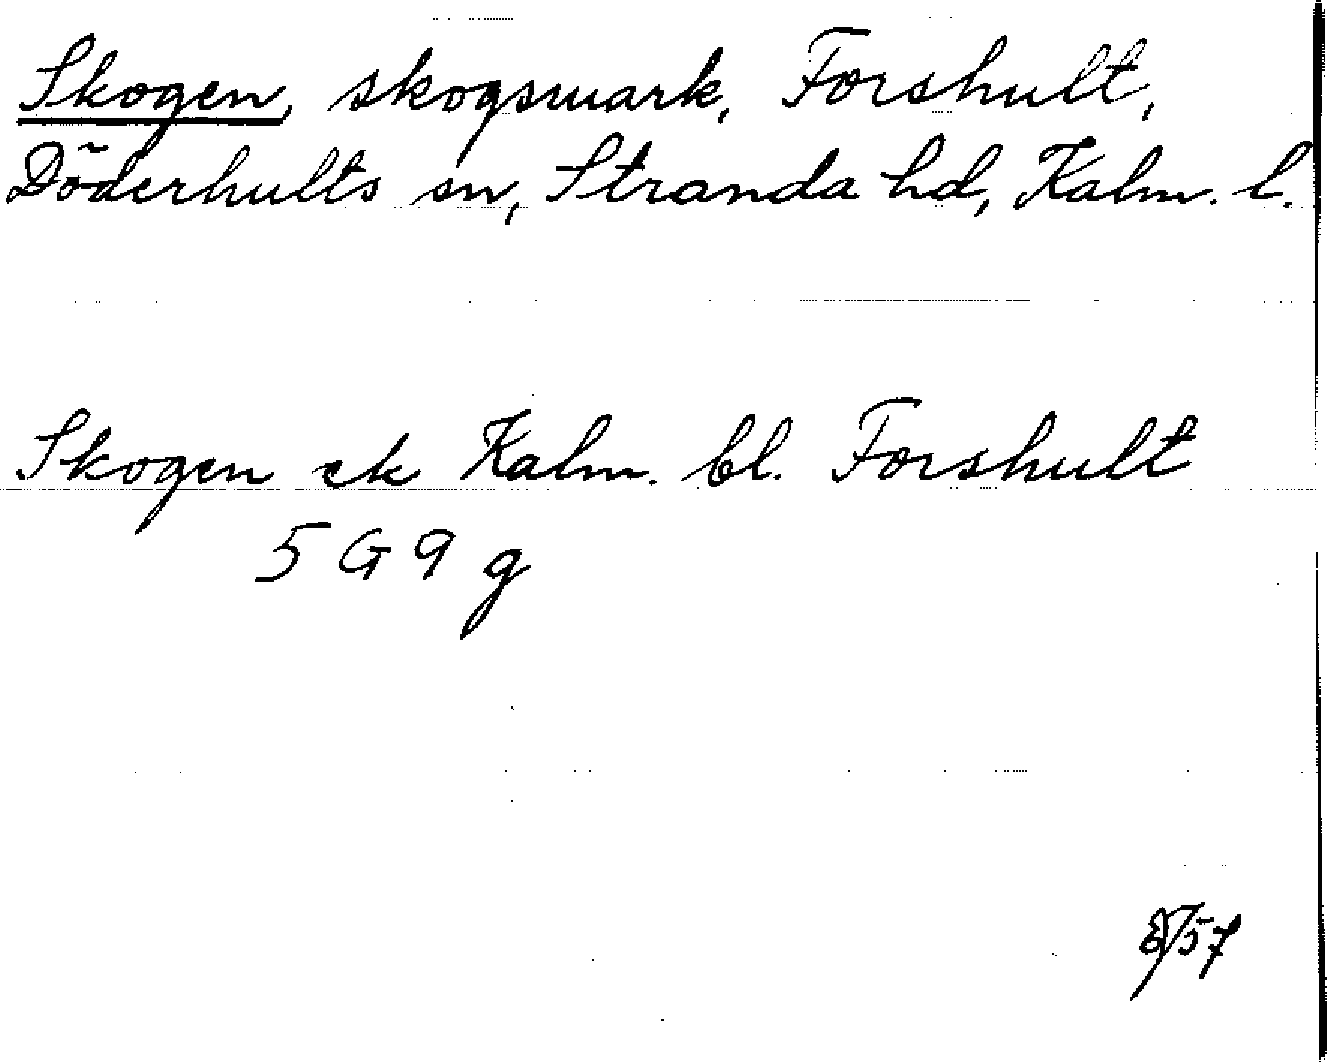 Skogen, skogsmark, Forshult,
Döderhults sn, Stranda hd, Kalm. l.
Skogen ek Kalm. bl. Forshult
5 G 9 g